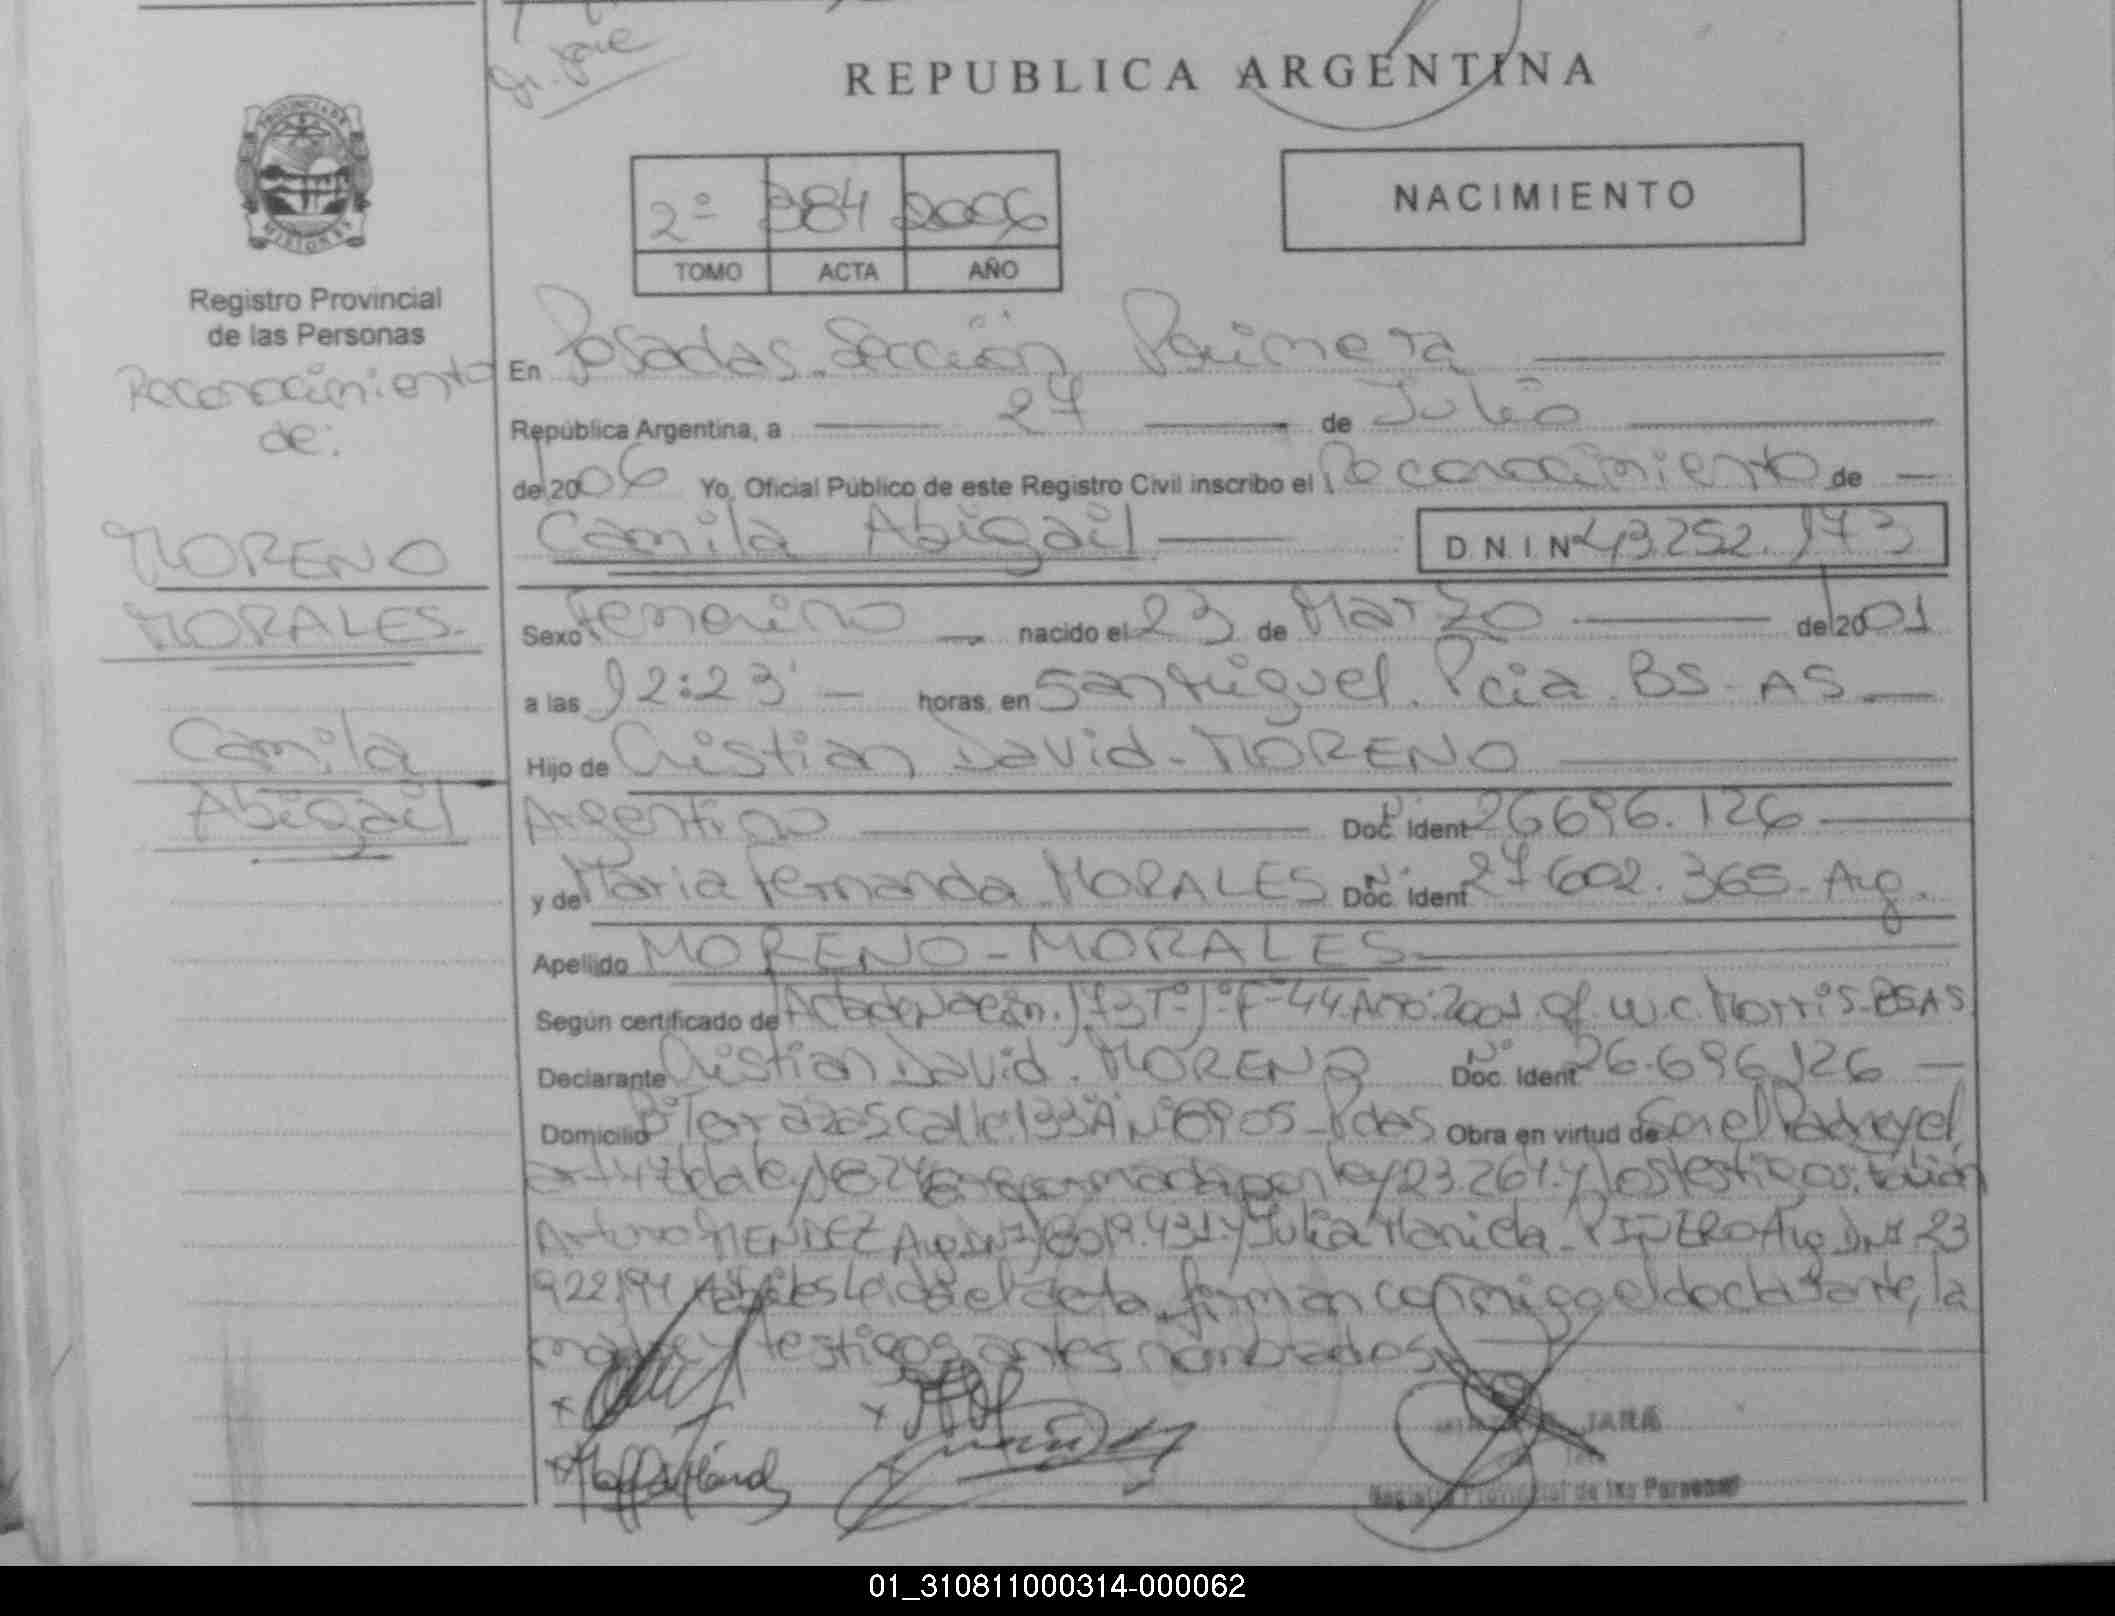 REPUBLICA ARGENTINA
PROVINCIA DE
MISIONES
Registro Provincial
de las Personas
Reconocimiento
de:
MORENO
MORALES.
Camila
Abigail
2º 384 2006
TOMO ACTA AÑO
NACIMIENTO
En Posadas. Sección Primera
República Argentina, a 27 de Julio
de 2006 Yo, Oficial Público de este Registro Civil inscribo el Reconocimiento de
Camila Abigail D.N.I.Nº 43.252.173
Sexo Femenino nacido el 23 de Marzo de 2001
a las 12:23' horas, en San Miguel. Pcia. BS-AS
Hijo de Cristian David-MORENO
Argentino Nº Doc. Ident 26696.126
y de Maria Fernanda MORALES Nº Doc. Ident 27602.365-Arg.
Apellido MORENO-MORALES
Según certificado de Acta de Nacim. 173 Tº-1º-Fº-44-Año:2001. Of. W.C. Morris-BSAS
Declarante Cristian David. MORENO Nº Doc. Ident 26.696.126
Domicilio Bº Terrazas calle 133"A"Nº6905-Pdas Obra en virtud de Ser el Padre y el
art-47 de la ley 18248 por ley 23.264. y los testigos:
Arturo MENDEZ Arg DNI 18019.431 y Julia Mariela PIÑERO Arg DNI 23
922194 Leída el acta, firman conmigo el declarante, la
madre y testigos antes nombrados.
JARA
Registro Provincial de las Personas
01_310811000314-000062